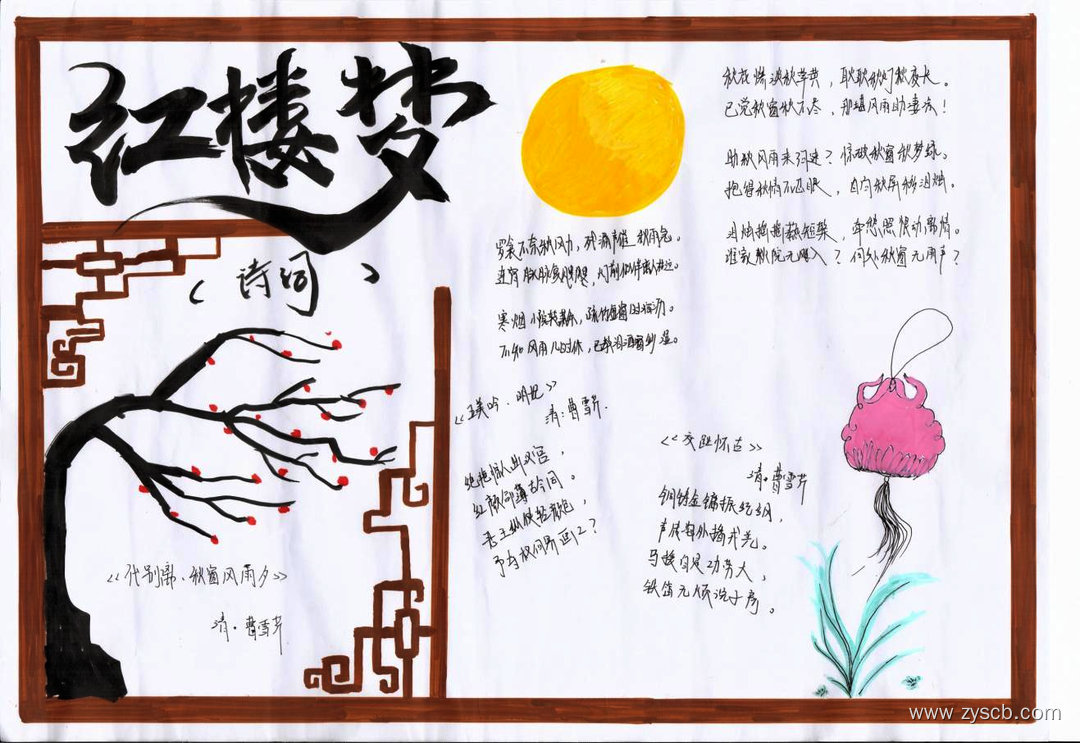 红楼梦
(诗词)
《代别离、秋窗风雨夕》
清·曹雪芹
秋花惨淡秋草黄,耿耿秋灯秋夜长。
已觉秋窗秋不尽,那堪风雨助凄凉!
助秋风雨来何速?惊破秋窗秋梦绿。
抱得秋情不忍眠,自向秋屏移泪烛。
泪烛摇摇爇短檠,牵愁照恨动离情。
谁家秋院无风入?何处秋窗无雨声?
罗衾不奈秋风力,残漏声催秋雨急。
连宵脉脉复飕飕,灯前似伴离人泣。
寒烟小院转萧条,疏竹虚窗时滴沥。
不知风雨几时休,已教泪洒窗纱湿。
《五美吟·明妃》
清:曹雪芹.
绝艳惊人出汉宫,
红颜命薄古今同。
君王纵使轻颜色,
予夺权何畀画工?
《交趾怀古》
清·曹雪芹
铜铸金镛振纪纲,
声传海外播戎羌。
马援自是功劳大,
铁笛无烦说子房。
www.zyscb.com